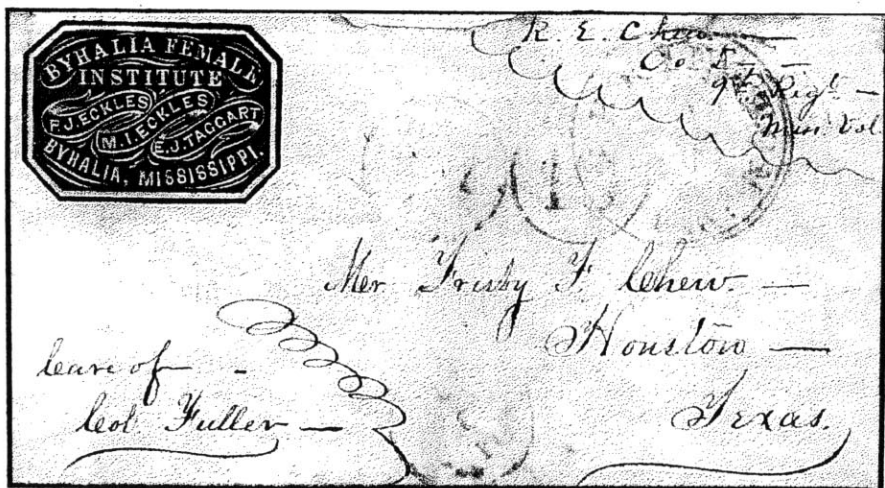 BYHALIA FEMALE
INSTITUTE
F. J. ECKLES
M. I. ECKLES
E. J. TAGGART
BYHALIA, MISSISSIPPI.
R. E. Chew —
Co. —
9th Regt —
Vol.
Mer F. Chew. —
Houston —
Texas.
Care of —
Col Fuller —